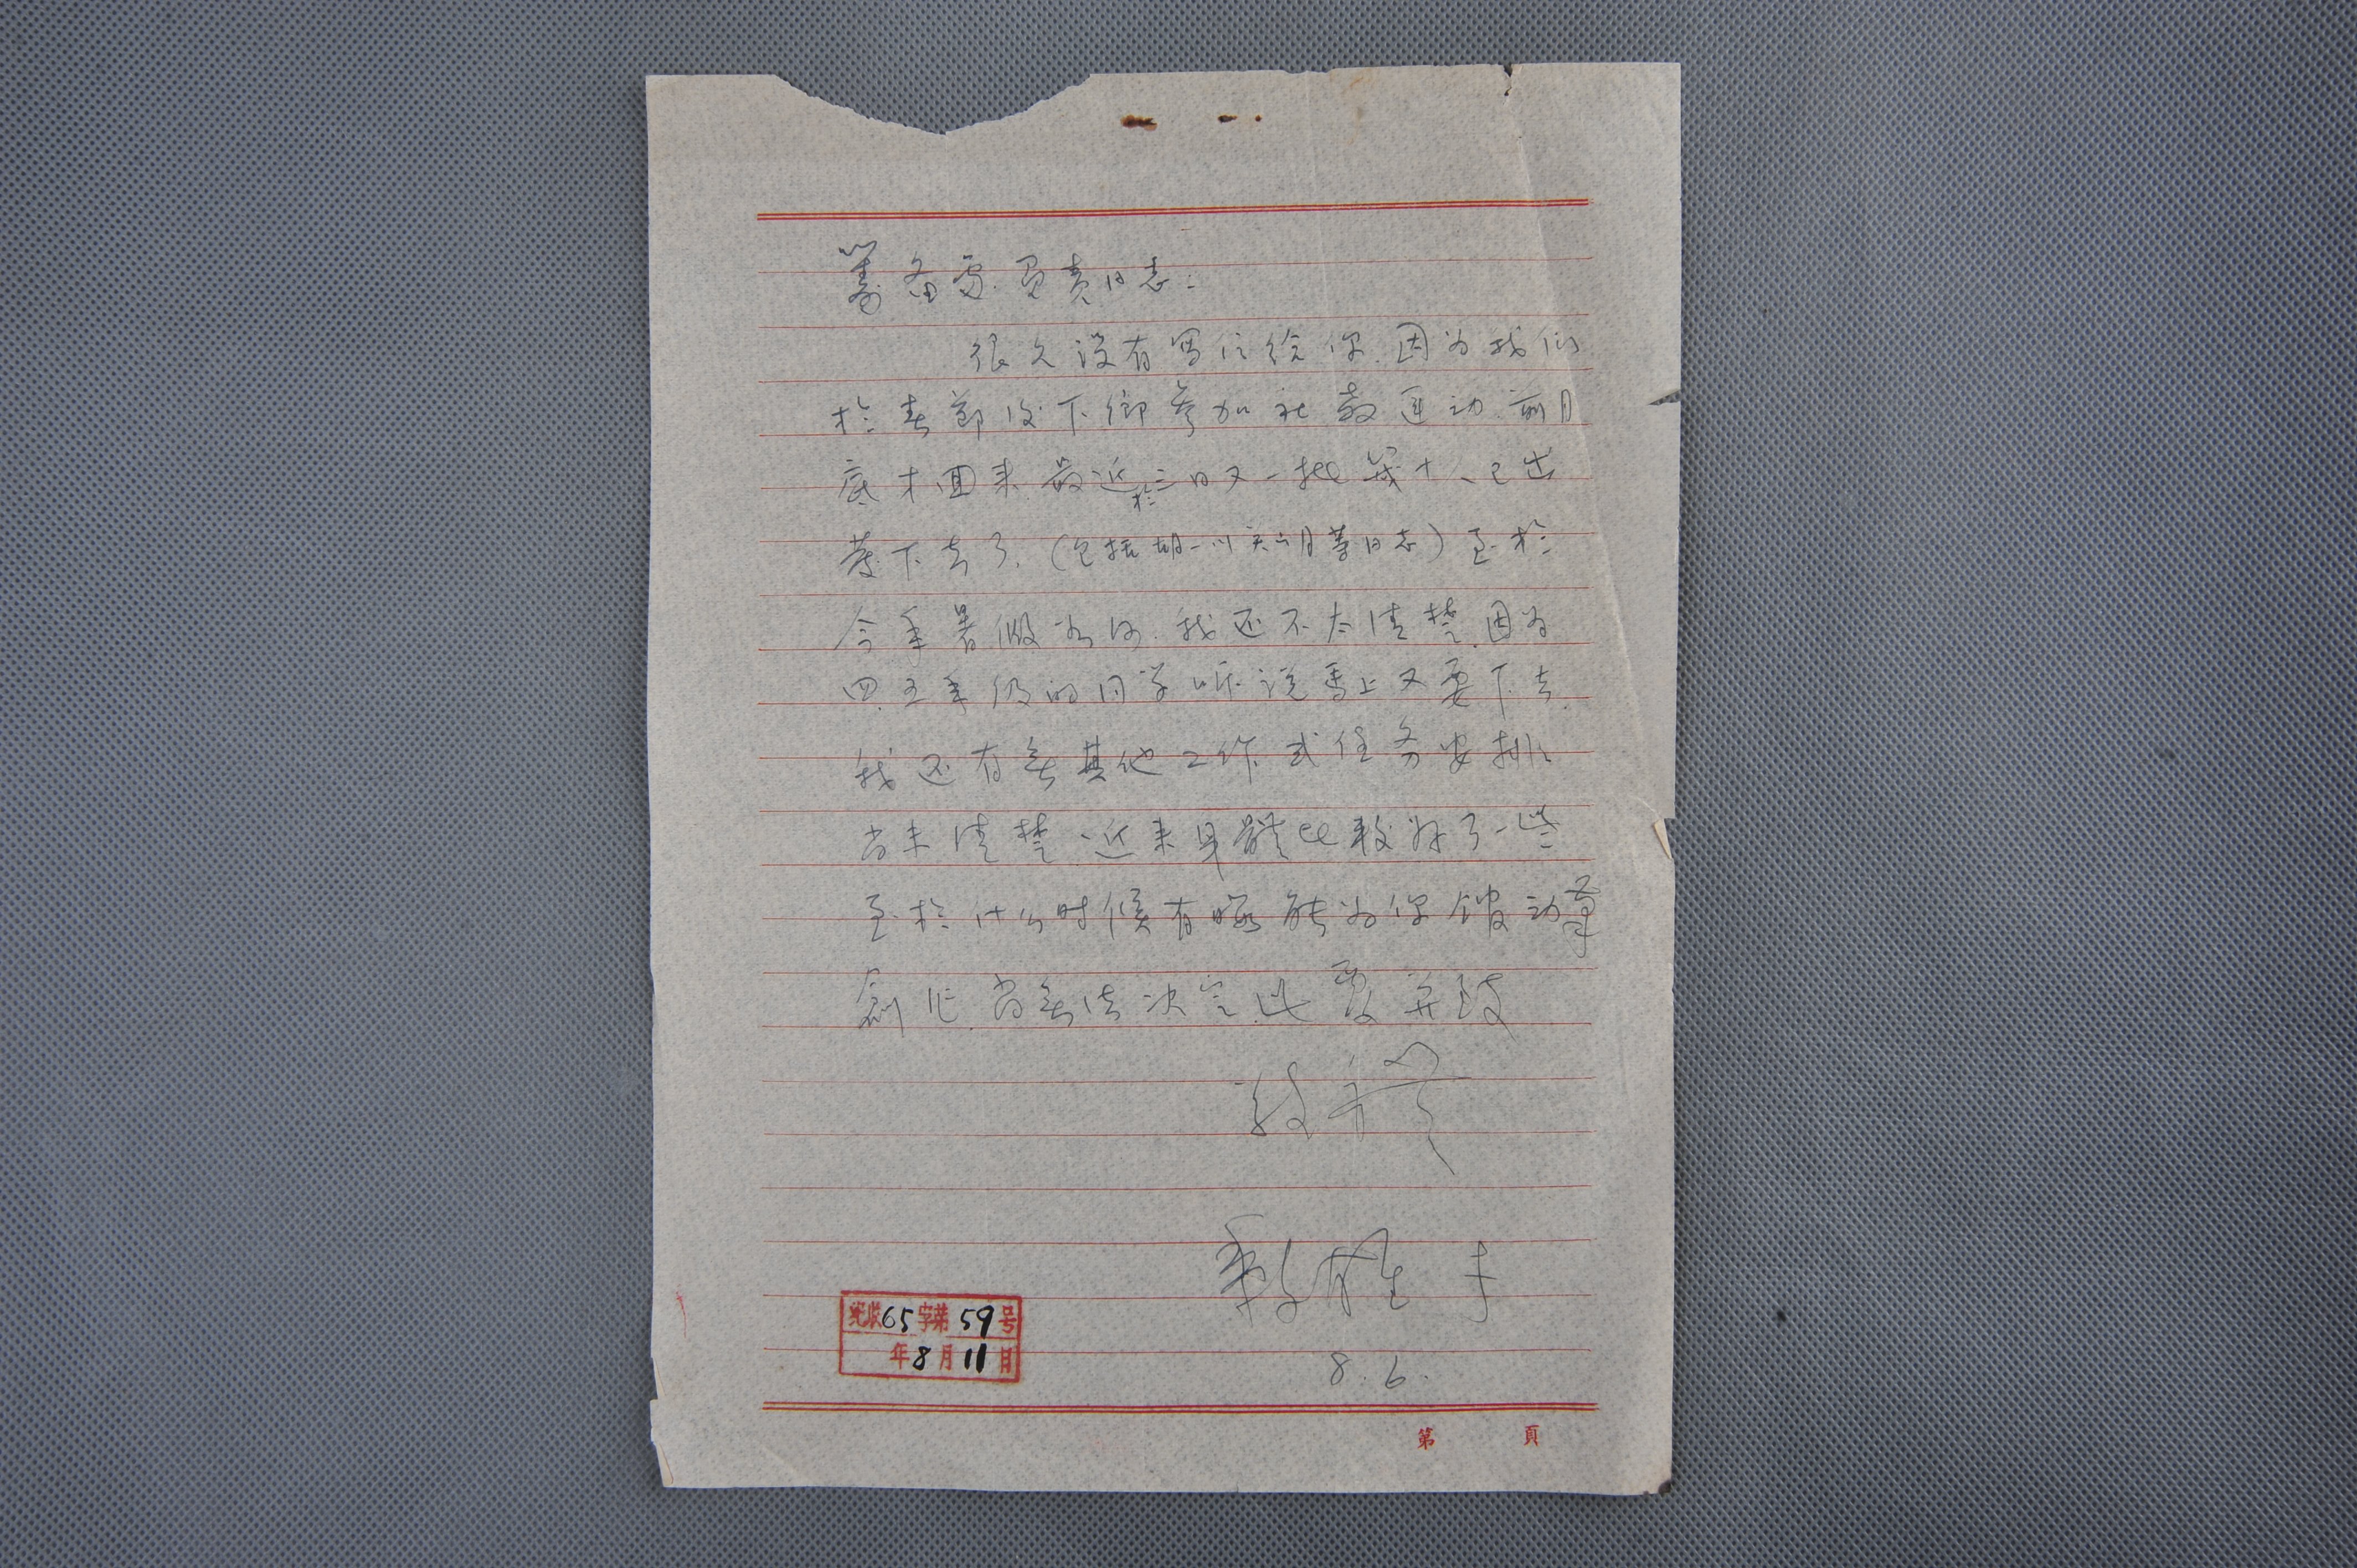 筹备处负责同志：
很久没有写信给你，因为我们
於春节后下鄉参加社教运动，前月
底才回来，最近於三日又一批幾十人已出
發下去了，（包括胡一川、关山月等同志）至於
今年暑假如何，我还不太清楚，因为
四、五年级的同学听说馬上又要下去，
我还有無其他工作或任务安排
尚未清楚，近来身體比較好了一些
至於什么时候有暇能为你館动筆
創作，尚無法决定，此覆 并致
敬礼
手
8.6.
收65字第59号
年8月11日
第 頁